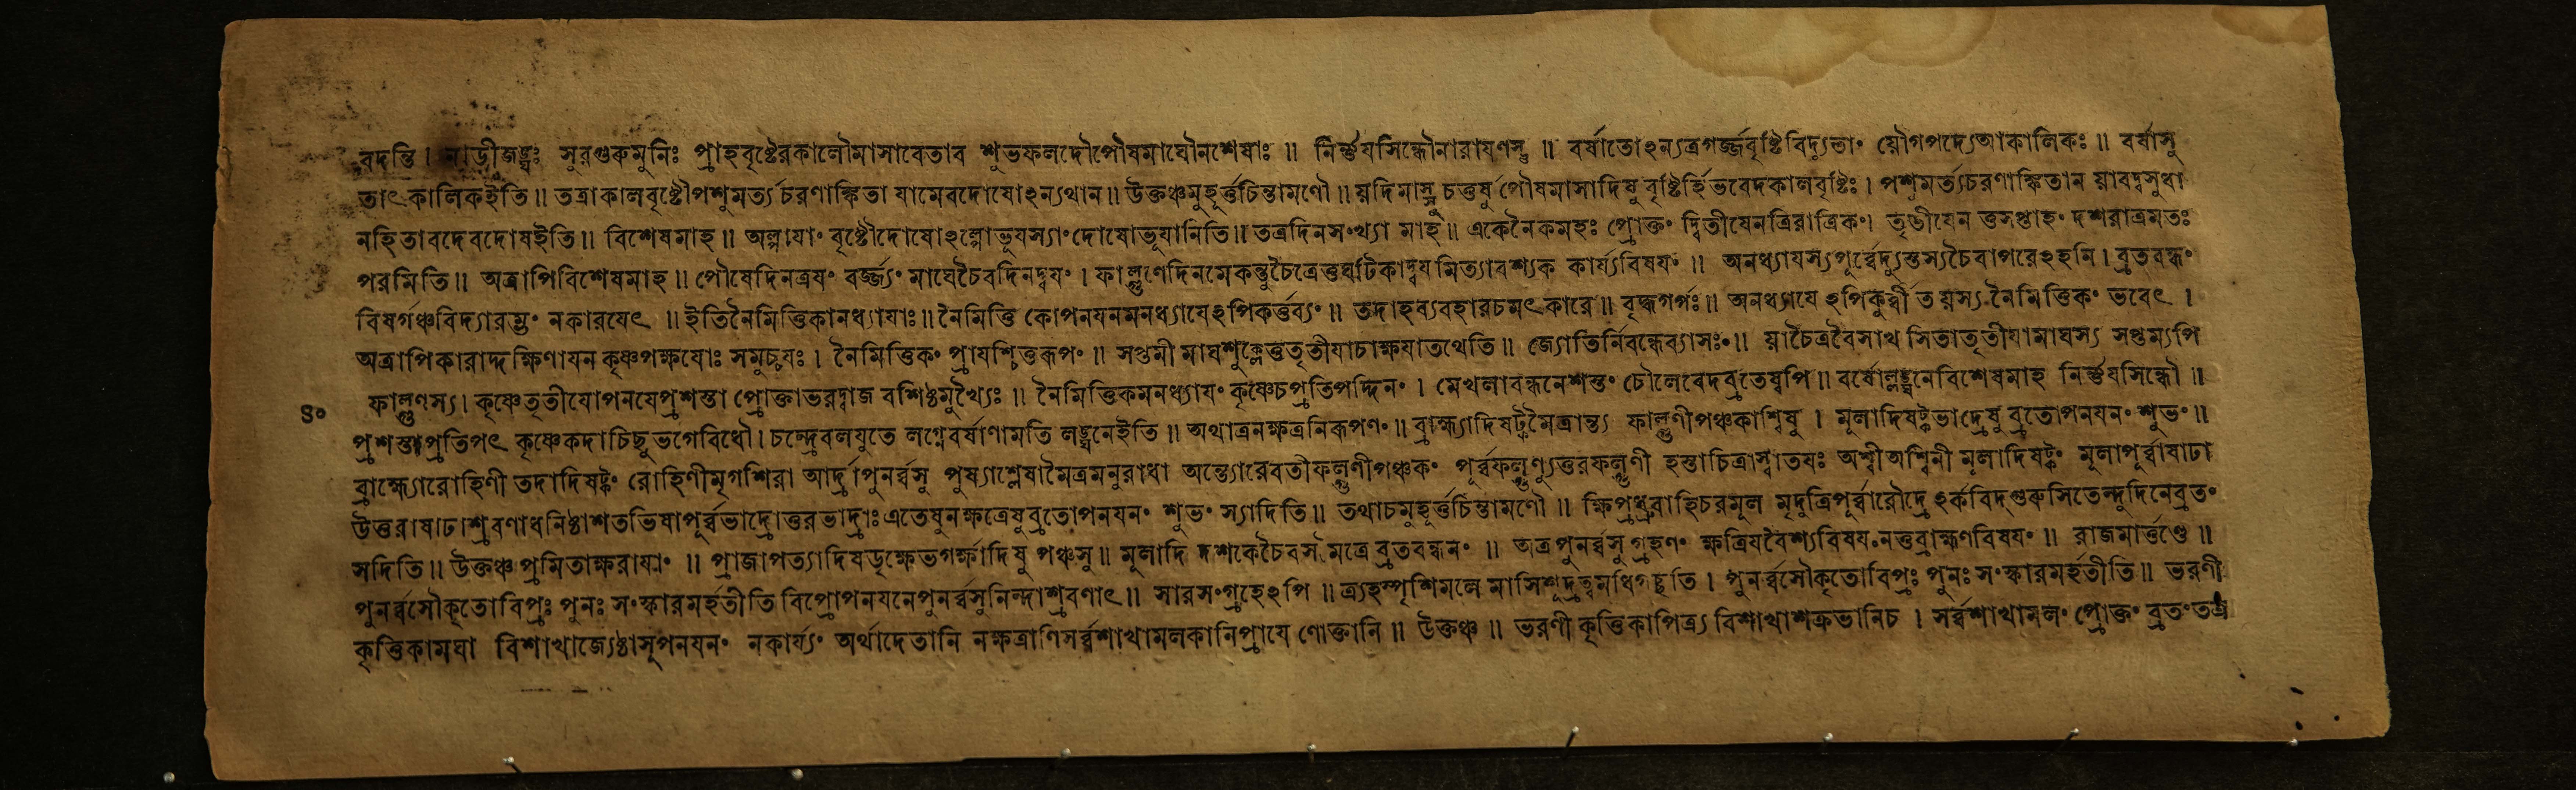 বদন্তি । নাড়ীজঙ্ঘঃ সুরগুরুমুনিঃ প্রাহবৃষ্টেরকালৌমাসাবেতাব শুভফলদৌপৌষমাঘৌনশেষাঃ ॥ নির্ণ্ণযসিন্ধৌনারাযণস্তু ॥ বর্ষাতোঽন্যত্রগর্জ্জবৃষ্টিবিদ্যুতাং য়ৌগপদ্যেআকালিকঃ ॥ বর্ষাসু
তাৎকালিকইতি ॥ তত্রাকালবৃষ্টৌপশুমর্ত্য চরণাঙ্কিতা যামেবদোষোঽন্যথান ॥ উক্তঞ্চমুহূর্ত্তচিন্তামণৌ ॥ য়দিমাস্সু চতুর্ষু পৌষমাসাদিষু বৃষ্টির্হিভবেদকালবৃষ্টিঃ । পশুমর্ত্যচরণাঙ্কিতান য়াবদ্বসুধা
নহিতাবদেবদোষইতি ॥ বিশেষমাহ ॥ অল্পাযাং বৃষ্টৌদোষোঽল্পোভূযস্যাং দোষোভূযানিতি ॥ তত্রদিনসংখ্যা মাহ ॥ একেনৈকমহঃ প্রোক্তং দ্বিতীযেনত্রিরাত্রিকং। তৃতীযেন তুসপ্তাহং দশরাত্রমতঃ
পরমিতি ॥ অত্রাপিবিশেষমাহ ॥ পৌষেদিনত্রযং বর্জ্জ্যং মাঘেচৈবদিনদ্বযং । ফাল্গুণেদিনমেকন্তুচৈত্রেতুঘটিকাদ্বযমিত্যাবশ্যক কার্য্যবিষযং ॥ অনধ্যাযস্যপূর্ব্বেদ্যুস্তস্যচৈবাপরেঽহনি । ব্রতবন্ধং
বিষর্গঞ্চবিদ্যারম্ভং নকারযেৎ ॥ ইতিনৈমিত্তিকানধ্যাযাঃ ॥ নৈমিত্তি কোপনযনমনধ্যাযেঽপিকর্ত্তব্যং ॥ তদাহব্যবহারচমৎকারে ॥ বৃদ্ধগর্গঃ ॥ অনধ্যাযে ঽপিকুর্ব্বী তয়স্যনৈমিত্তিকং ভবেৎ ।
অত্রাপিকারাদ্দক্ষিণাযন কৃষ্ণপক্ষযোঃ সমুচ্চযঃ । নৈমিত্তিকং প্রাযশ্চিত্তরূপং ॥ সপ্তমী মাঘশুক্লেতুতৃতীযাচাক্ষযাতথেতি ॥ জ্যোতির্নিবন্ধেব্যাসঃ ॥ য়াচৈত্রবৈসাখ সিতাতৃতীযামাঘস্য সপ্তম্যপি
ফাল্গুণস্য । কৃষ্ণেতৃতীযোপনযেপ্রশস্তা প্রোক্তাভরদ্বাজ বশিষ্ঠমুখ্যৈঃ ॥ নৈমিত্তিকমনধ্যাযং কৃষ্ণেচপ্রতিপদ্দিনং । মেখলাবন্ধনেশস্তং চৌলেবেদব্রতেষ্বপি ॥ বর্ষোল্লঙ্ঘনেবিশেষমাহ নির্ণ্ণযসিন্ধৌ ॥
৪০
প্রশস্তাপ্রতিপৎ কৃষ্ণেকদাচিচ্ছুভগেবিধৌ । চন্দ্রেবলযুতে লগ্নেবর্ষাণামতি লঙ্ঘনেইতি ॥ অথাত্রনক্ষত্রনিরূপণং ॥ ব্রাহ্ম্যাদিষট্কমৈত্রান্ত্য ফাল্গুণীপঞ্চকাশ্বিষু । মূলাদিষট্কভাদ্রেষু ব্রতোপনযনং শুভং ॥
ব্রাহ্ম্যোরোহিণী তদাদিষট্কং রোহিণীমৃগশিরা আর্দ্রাপুনর্ব্বসু পুষ্যাশ্লেষামৈত্রমনুরাধা অন্ত্যোরেবতীফল্গুণীপঞ্চকং পূর্ব্বফল্গুণ্যুত্তরফল্গুণী হস্তাচিত্রাস্বাতযঃ অশ্বীঅশ্বিনী মূলাদিষট্কং মূলাপূর্ব্বাষাঢা
উত্তরাষাঢাশ্রবণাধনিষ্ঠাশতভিষাপূর্ব্বভাদ্রোত্তরভাদ্রাঃ এতেষুনক্ষত্রেষুব্রতোপনযনং শুভং স্যাদিতি ॥ তথাচমুহূর্ত্তচিন্তামণৌ ॥ ক্ষিপ্রধ্রুবাহিচরমূল মৃদুত্রিপূর্ব্বারৌদ্রেঽর্কবিদ্গুরুসিতেন্দুদিনেব্রতং
সদিতি ॥ উক্তঞ্চ প্রমিতাক্ষরাযাং ॥ প্রাজাপত্যাদিষড়ৃক্ষেভগর্ক্ষাদিষু পঞ্চসু ॥ মূলাদি দশকেচৈবসমৈত্রে ব্রতবন্ধনং ॥ অত্র পুনর্ব্বসু গ্রহণং ক্ষত্রিযবৈশ্যবিষযংনতুব্রাহ্মণবিষযং ॥ রাজমার্ত্তণ্ডে ॥
পুনর্ব্বসৌকৃতোবিপ্রঃ পুনঃ সংস্কারমর্হতীতি বিপ্রোপনযনেপুনর্ব্বসুনিন্দাশ্রবণাৎ ॥ সারসংগ্রহেঽপি ॥ ত্র্যহস্পৃশিমলে মাসিশূদ্রত্বমধিগচ্ছতি । পুনর্ব্বসৌকৃতোবিপ্রঃ পুনঃ সংস্কারমর্হতীতি ॥ ভরণী
কৃত্তিকামঘা বিশাখাজ্যেষ্ঠাসূপনযনং নকার্য্যং অর্থাদেতানি নক্ষত্রাণিসর্ব্বশাখামলকানিপ্রাযে ণোক্তানি ॥ উক্তঞ্চ ॥ ভরণী কৃত্তিকাপিত্র্য বিশাখাশক্রভানিচ । সর্ব্বশাখামলং প্রোক্তং ব্রতংতত্র